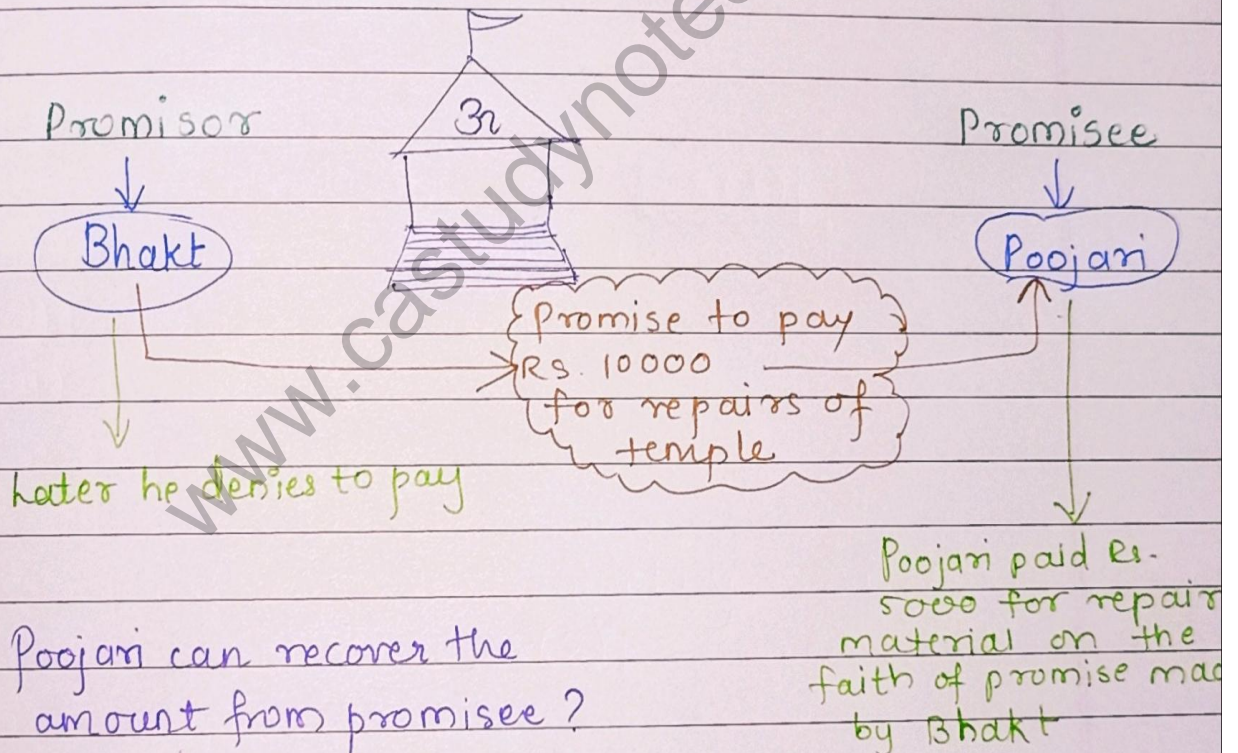 Promisor
Promisee
Bhakt
Poojari
Promise to pay
Rs. 10000
for repairs of
temple
Later he denies to pay
Poojari paid Rs.
5000 for repair
material on the
faith of promise mad
by Bhakt
Poojari can recover the
amount from promisee ?
www.castudynotes